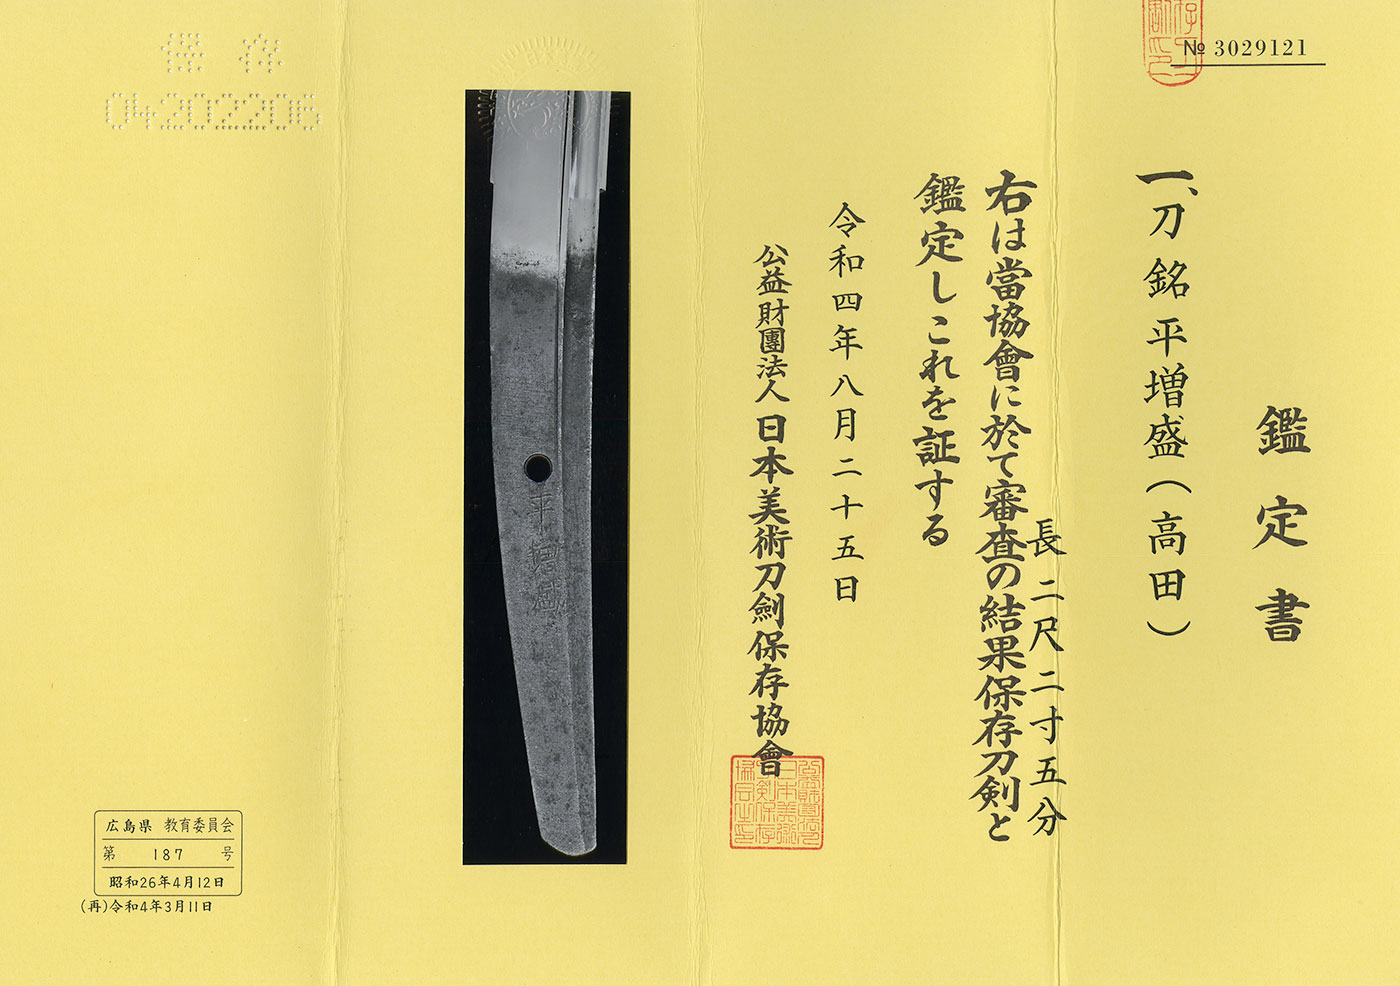 № 3029121
鑑定書
一、刀 銘 平増盛（高田）
長二尺二寸五分
右は當協會に於て審査の結果保存刀剣と
鑑定しこれを証する
令和四年八月二十五日
公益財團法人 日本美術刀劍保存協會
平増盛
保存
04202206
広島県 教育委員会
第 187 号
昭和26年4月12日
(再)令和4年3月11日